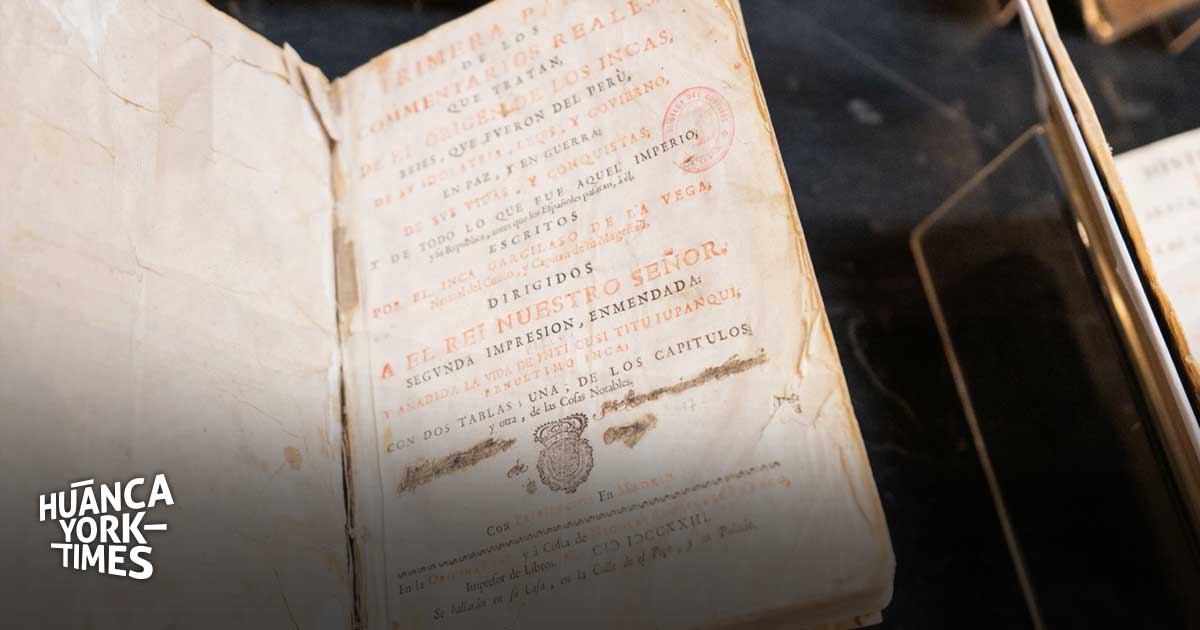 PRIMERA
DE LOS
COMMENTARIOS REALES,
QUE TRATAN,
DE EL ORIGEN DE LOS INCAS,
REIES, QUE FVERON DEL PERÙ,
DE SV IDOLATRIA, LEYES, Y GOVIERNO,
EN PAZ, Y EN GUERRA:
DE SVS VIDAS, Y CONQUISTAS,
Y DE TODO LO QUE FUE AQUEL IMPERIO,
y su Republica, antes que los Españoles pasaran, à èl.
ESCRITOS
POR EL INCA GARCILASO DE LA VEGA,
Natural del Cozco, y Capitan de su Magestad,
DIRIGIDOS
A EL REI NUESTRO SEÑOR.
SEGVNDA IMPRESION, ENMENDADA:
Y AÑADIDA LA VIDA DE INTI CUSI TITU IUPANQUI,
PENULTIMO INCA;
CON DOS TABLAS; UNA, DE LOS CAPITULOS,
y otra, de las Cosas Notables,
17
de
CON PRIVILEGIO En MADRID
En la OFICINA y à Costa de
Impresor de Libros. CIƆ IƆCCXXIII.
Se hallaràn en su Casa, en la Calle de el Pozo, y en Palacio.
HUANCA
YORK—
—TIMES